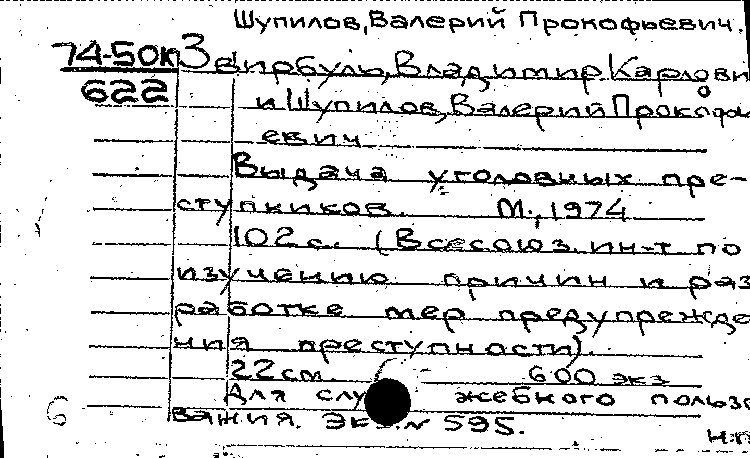 Шупилов, Валерий Прокофьевич.
74-50к Звирбуль, Владимир Карлови
622
и Шупилов, Валерий Прокофь
евич
Выдача уголовных пре-
ступников. М., 1974
102 с. (Всесоюз. ин-т по
изучению причин и раз
работке мер предупрежде
ния преступности).
22 см. 600 экз
Для служебного пользо
вания. Экз. № 595.
6 н.п